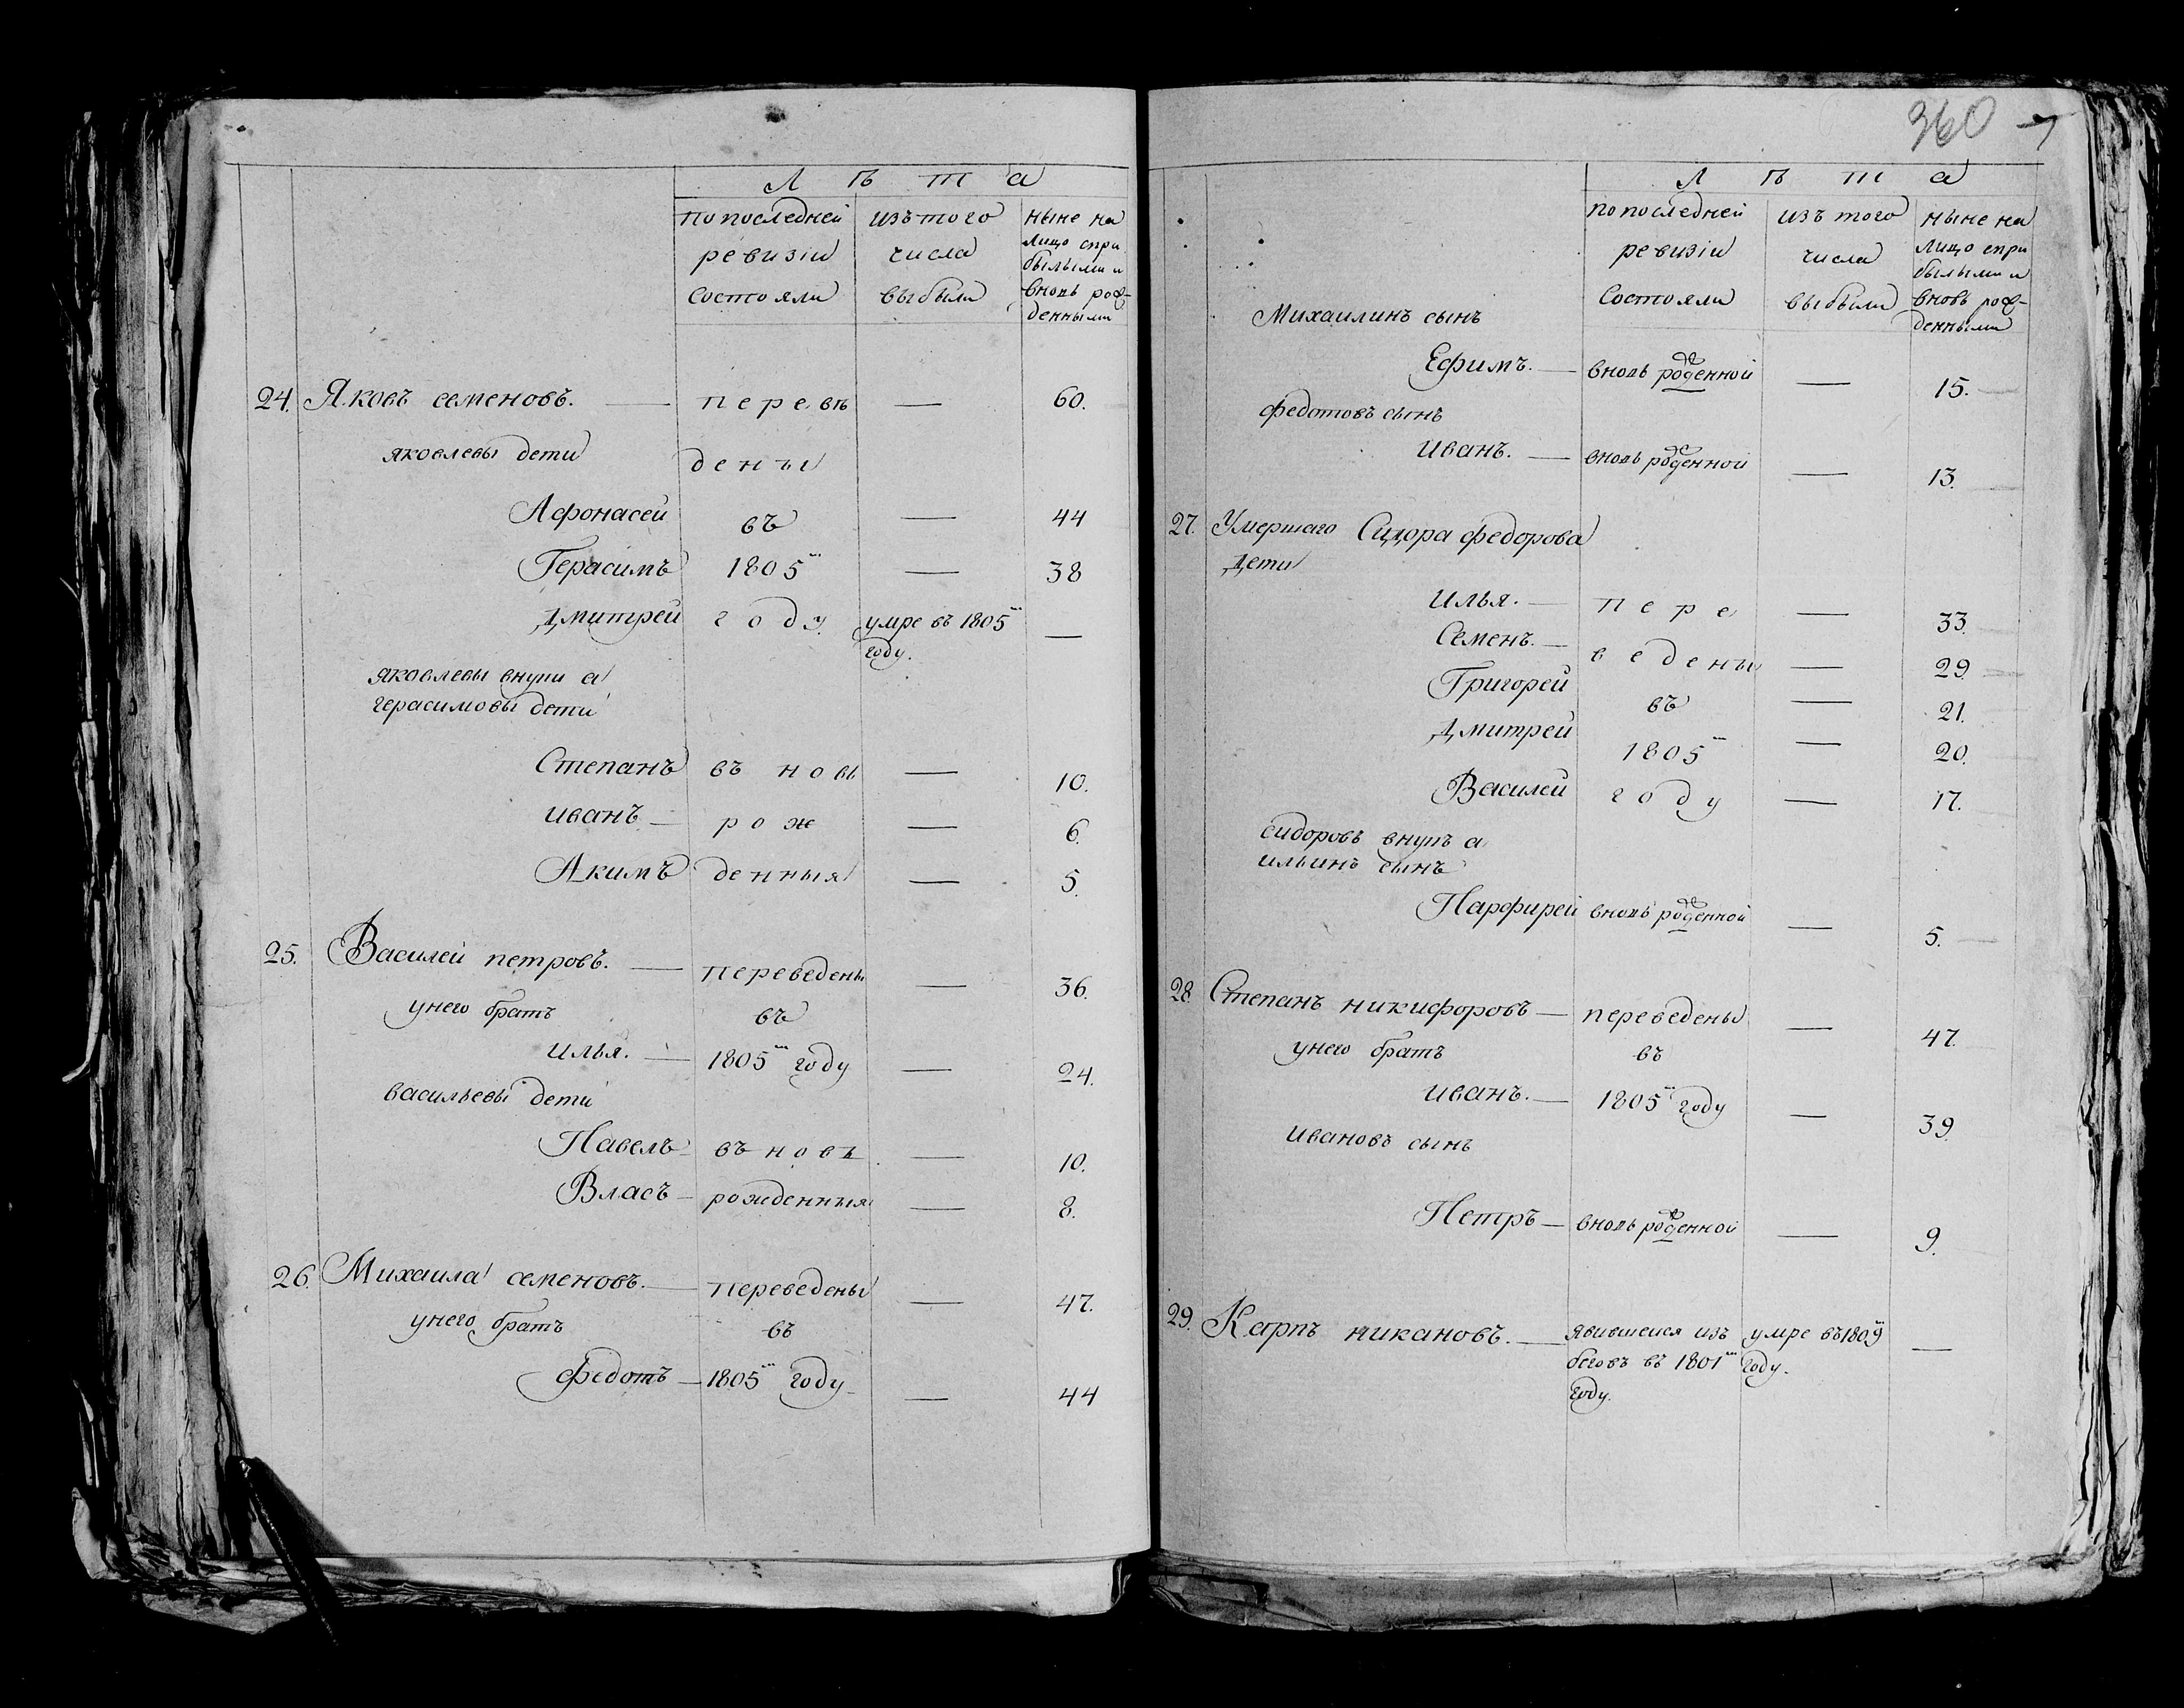 Л ѣ т а
по последней изъ того ныне на
ревизіи числа лицо спри
былыми и
состояли выбыли вновь рож-
денными
24. Яковъ семеновъ. — переве — 60.
яковлевы дети дены
Афонасей въ — 44
Герасимъ 1805м — 38
Дмитрей году умре въ 1805м —
году.
яковлевы внуки а
герасимовы дети
Степанъ въ новь — 10.
иванъ — рож — 6.
Акимъ денныя — 5.
25. Василей петровъ. — переведены — 36.
унего братъ въ
илья. — 1805м году — 24.
васильевы дети
Павелъ въ новь — 10.
Власъ — рожденныя — 8.
26. Михаила семеновъ. — переведены — 47.
унего братъ въ
федотъ — 1805м году — 44
360 7
Л ѣ т а
по последней изъ того ныне на
ревизіи числа лицо спри
былыми и
состояли выбыли вновь рож-
денными
Михаилинъ сынъ
Ефимъ. — вновь рожденной — 15.
федотовъ сынъ
иванъ. — вновь рожденной — 13.
27. Умершаго Сидора федорова
дети
илья. — пере — 33.
Семенъ. — ведены — 29.
Григорей въ — 21.
Дмитрей 1805м — 20.
Василей году — 17.
сидоровъ внукъ а
ильинъ сынъ
Парфирей вновь рожденной — 5.
28. Степанъ никифоровъ — переведены — 47.
унего братъ въ
иванъ. — 1805м году — 39.
ивановъ сынъ
Петръ — вновь рожденной — 9.
29. Карпъ никановъ. — явившейся изъ умре въ 1809м —
беговъ въ 1801м году.
году.